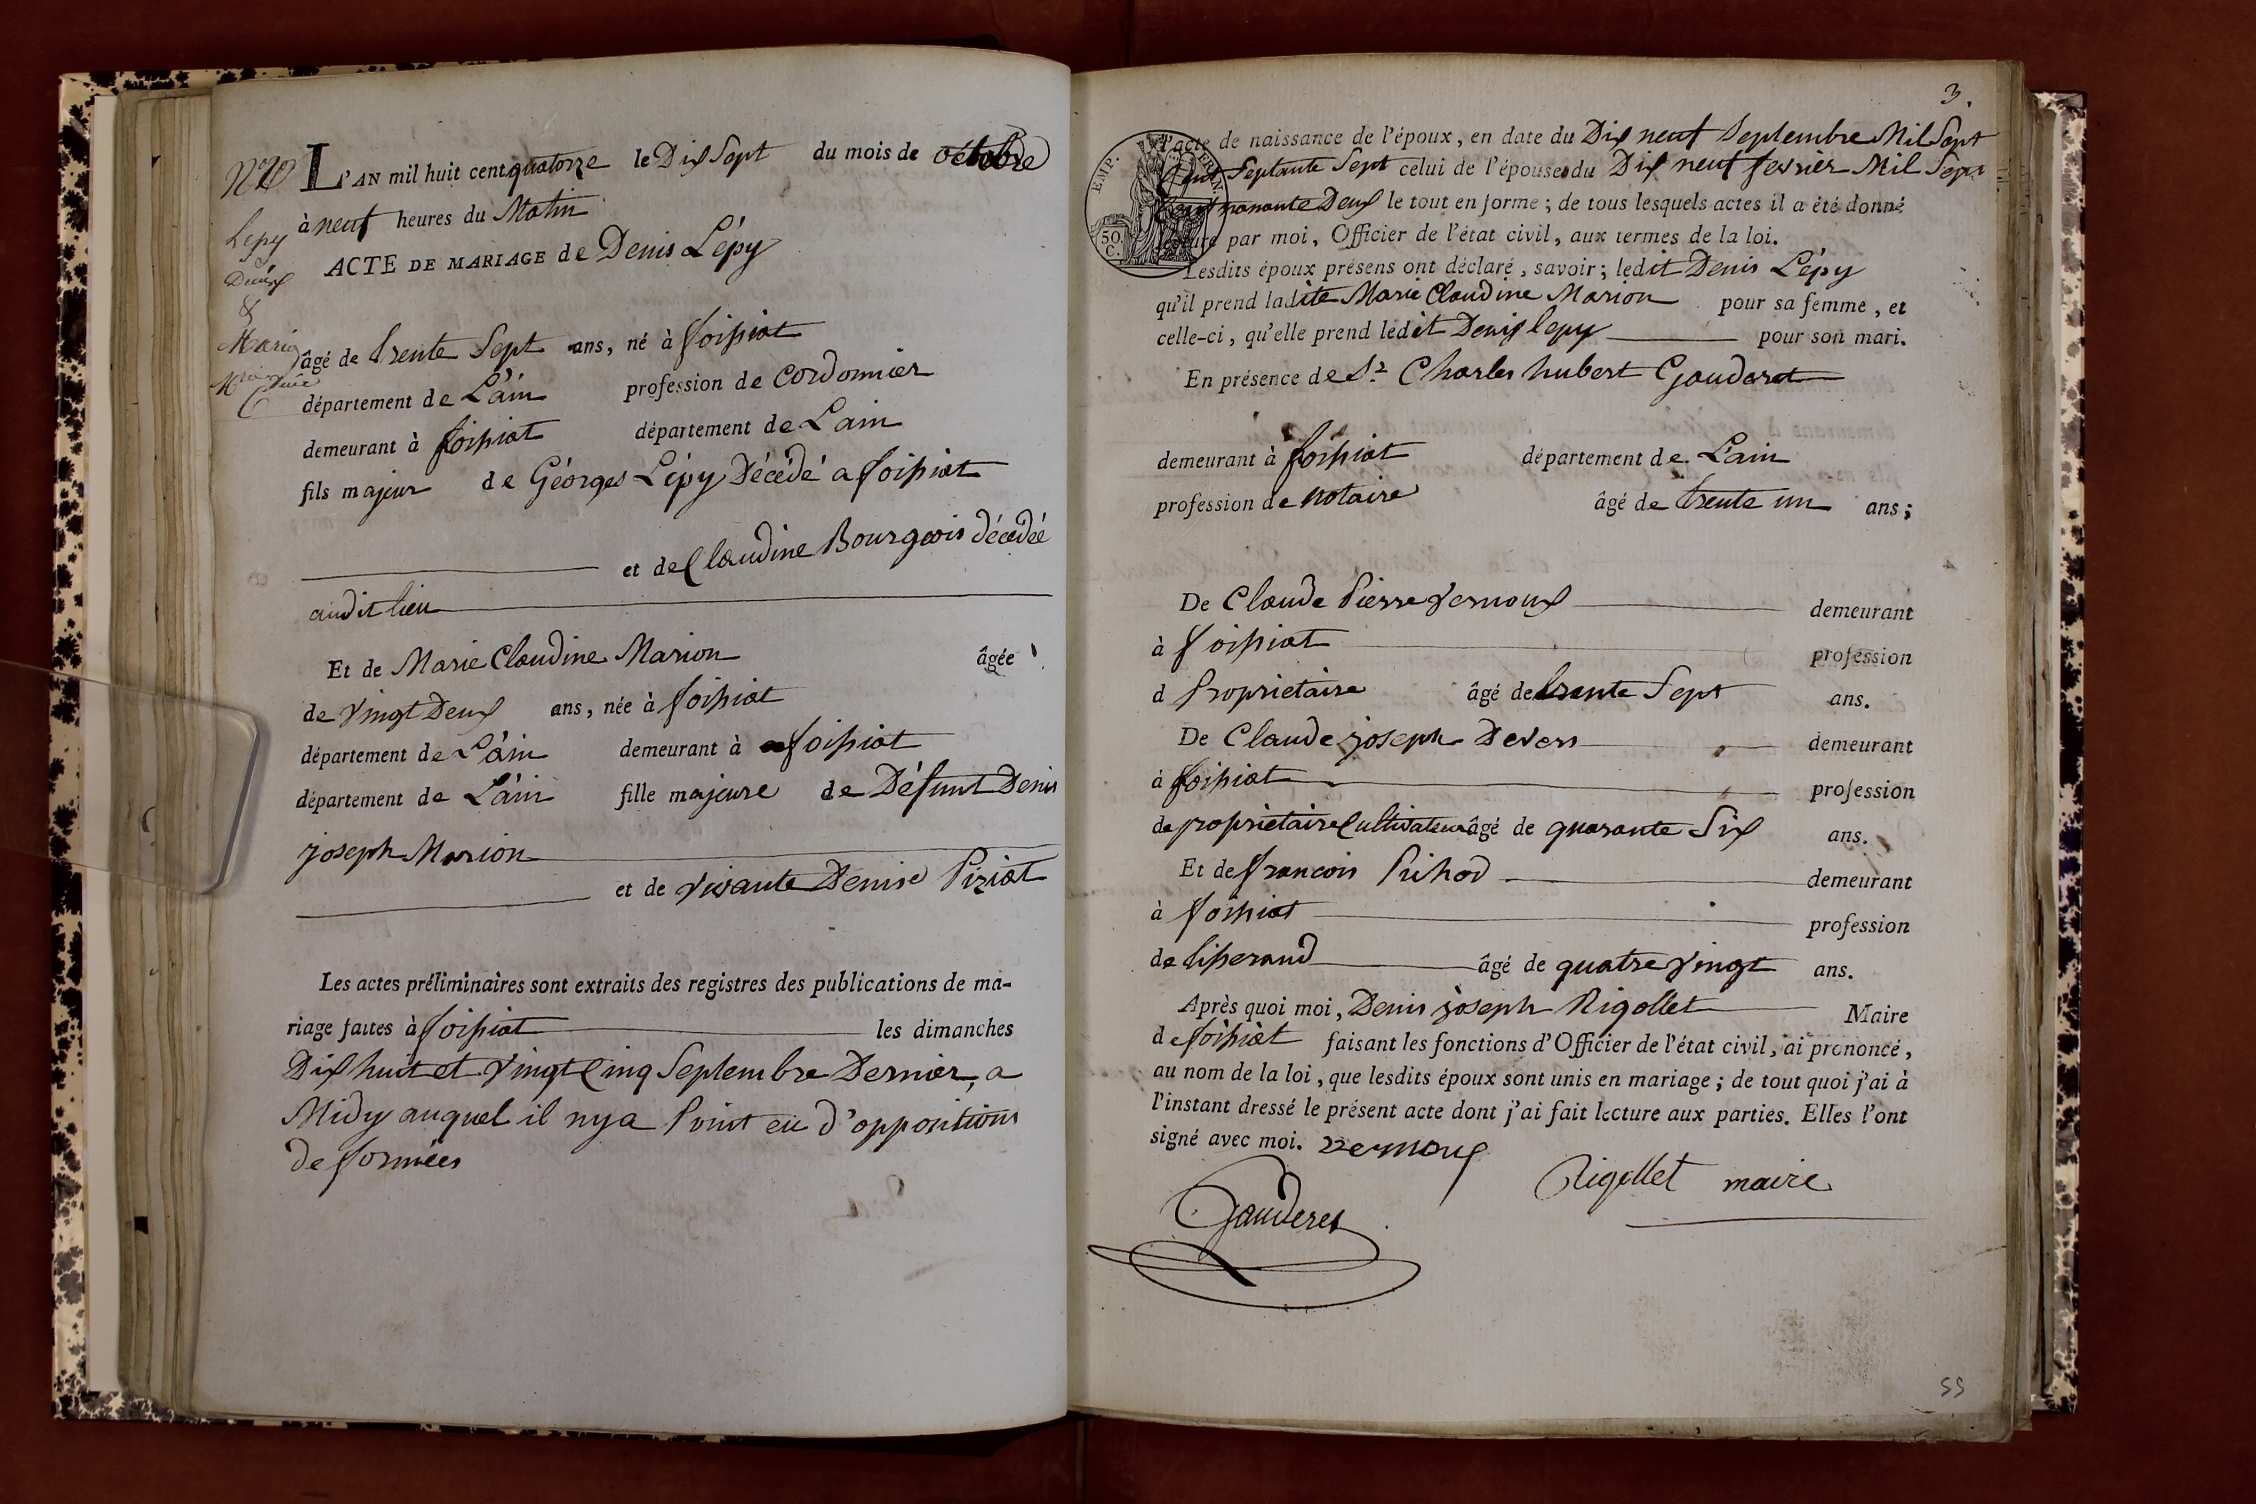 L'AN mil huit cent quatorze le Dix Sept du mois de octobre
à neuf heures du Matin
ACTE DE MARIAGE de Denis Lépy
Lepy
Denis
&
Marion
âgé de trente Sept ans, né à foissiat
département de L'ain profession de cordonnier
demeurant à foissiat département de Lain
fils majeur de Géorges Lépy Décédé a foissiat
et de Claudine Bourgeois décédée
audit lieu
Et de Marie Claudine Marion âgée
de vingt Deux ans, née à foissiat
département de L'ain demeurant à foissiat
département de L'ain fille majeure de Défunt Denis
joseph Marion
et de vivante Denise Piziat
Les actes préliminaires sont extraits des registres des publications de ma-
riage faites à foissiat les dimanches
Dix huit et vingt Cinq Septembre Dernier, a
Midy auquel il nya Point eü d'oppositions
de formées
3.
l'acte de naissance de l'époux, en date du Dix neuf Septembre Mil Sept
Cent Septante Sept celui de l'épouse du Dix neuf fevrier Mil Sept
Cent nonante Deux le tout en forme ; de tous lesquels actes il a été donné
lecture par moi, Officier de l'état civil, aux termes de la loi.
EMP. FRAN.
50.
C.
Lesdits époux présens ont déclaré, savoir ; ledit Denis Lépy
qu'il prend ladite Marie Claudine Marion pour sa femme, et
celle-ci, qu'elle prend ledit Denis lepy pour son mari.
En présence de Sr Charles hubert Gauderet
demeurant à foissiat département de Lain
profession de notaire âgé de trente un ans ;
De Claude Pierre Vernoux demeurant
à foissiat profession
d Proprietaire âgé de trente Sept ans.
De Claude joseph Devers demeurant
à foissiat profession
de proprietaire Cultivateur âgé de quarante Six ans.
Et de francois demeurant
à foissiat profession
de tisserand âgé de quatre vingt ans.
Après quoi moi, Denis joseph Rigollet Maire
de foissiat faisant les fonctions d'Officier de l'état civil, ai prononcé,
au nom de la loi, que lesdits époux sont unis en mariage ; de tout quoi j'ai à
l'instant dressé le présent acte dont j'ai fait lecture aux parties. Elles l'ont
signé avec moi. Vernoux
Rigollet maire
Gauderet
55